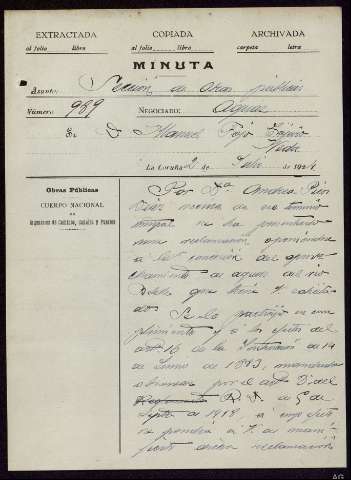 EXTRACTADA COPIADA ARCHIVADA
al folio libro al folio libro carpeta letra
MINUTA
Asunto: Sección de Obras públicas
Número: 989 NEGOCIADO: Aguas
Sr. D. Manuel
La Coruña 2 de Julio de 192
Obras Públicas
CUERPO NACIONAL
DE
Ingenieros de Caminos, Canales y Puertos
Por Dª Andrea
vecina de ese término
municipal se ha presentado
una reclamación oponiéndose
a la concesión del aprove
chamiento de aguas del río
Belelle que tiene V. solicita
do.
Se lo participo en cum
plimiento y a los efectos del
artº 16 de la Instrucción de 14
de Junio de 1883, mandada
observar por el artº del
Reglamento R. D. de 5 de
Septre de 1918, a cuyo efecto
se pondrá a V. de mani
fiesto dicha reclamación